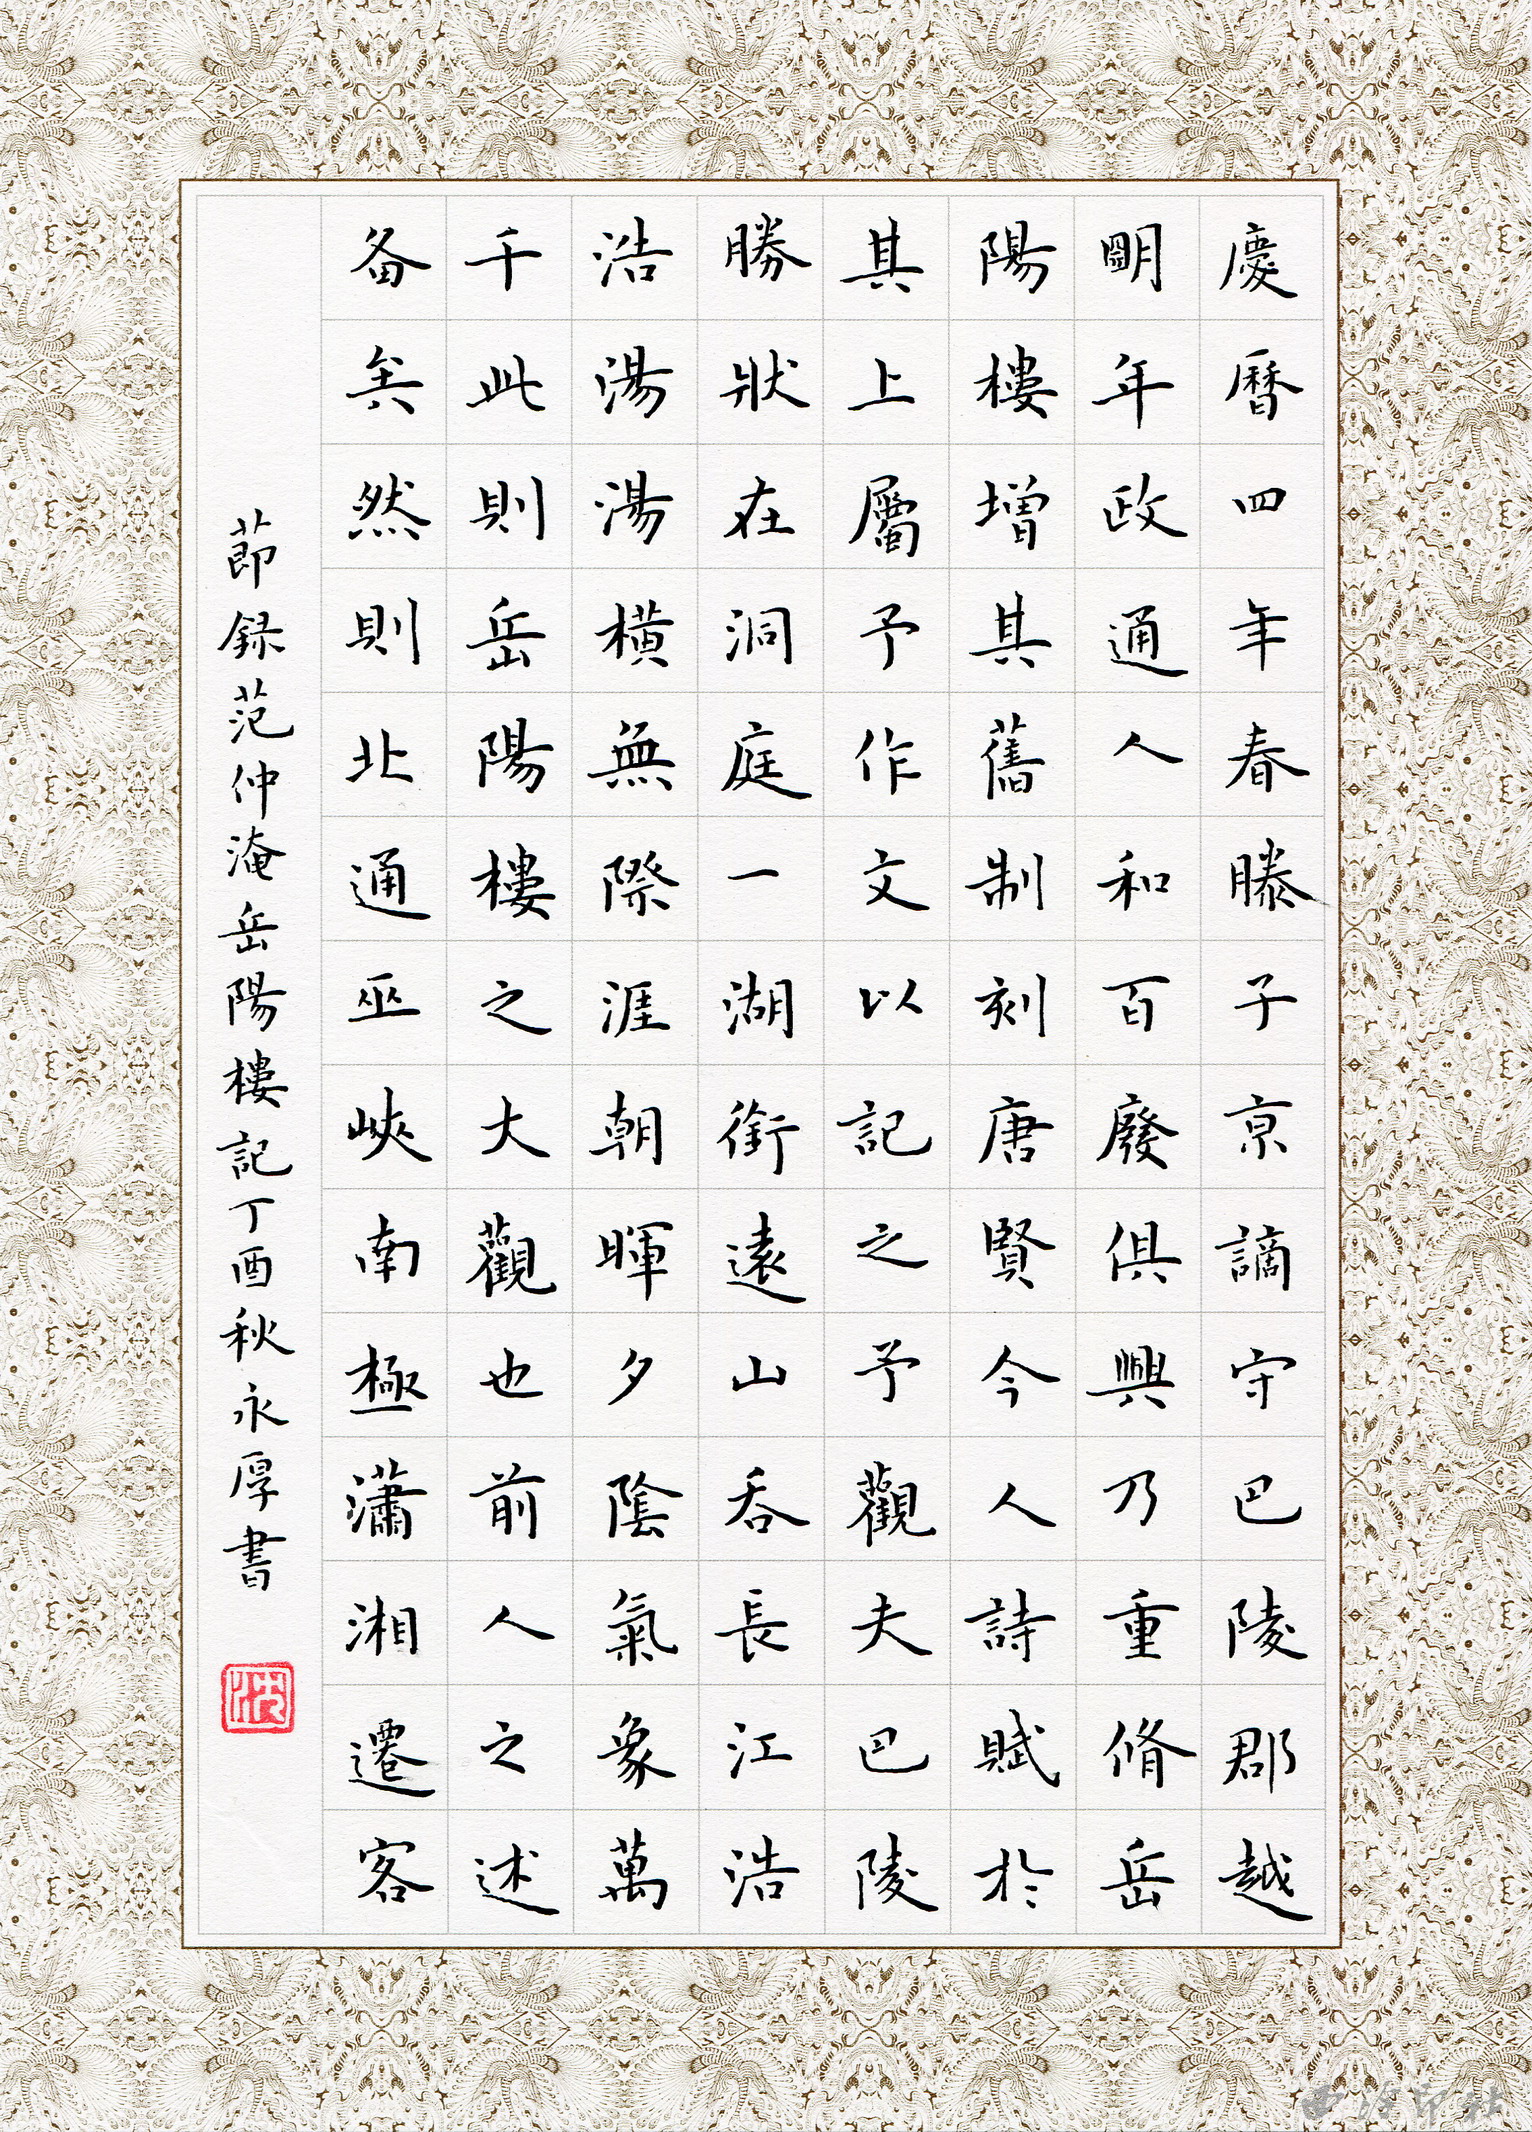 慶曆四年春滕子京謫守巴陵郡越
明年政通人和百廢俱興乃重脩岳
陽樓增其舊制刻唐賢今人詩賦於
其上屬予作文以記之予觀夫巴陵
勝狀在洞庭一湖銜遠山吞長江浩
浩湯湯橫無際涯朝暉夕陰氣象萬
千此則岳陽樓之大觀也前人之述
备矣然則北通巫峽南極瀟湘遷客
節録范仲淹岳陽樓記丁酉秋永厚書
西泠印社